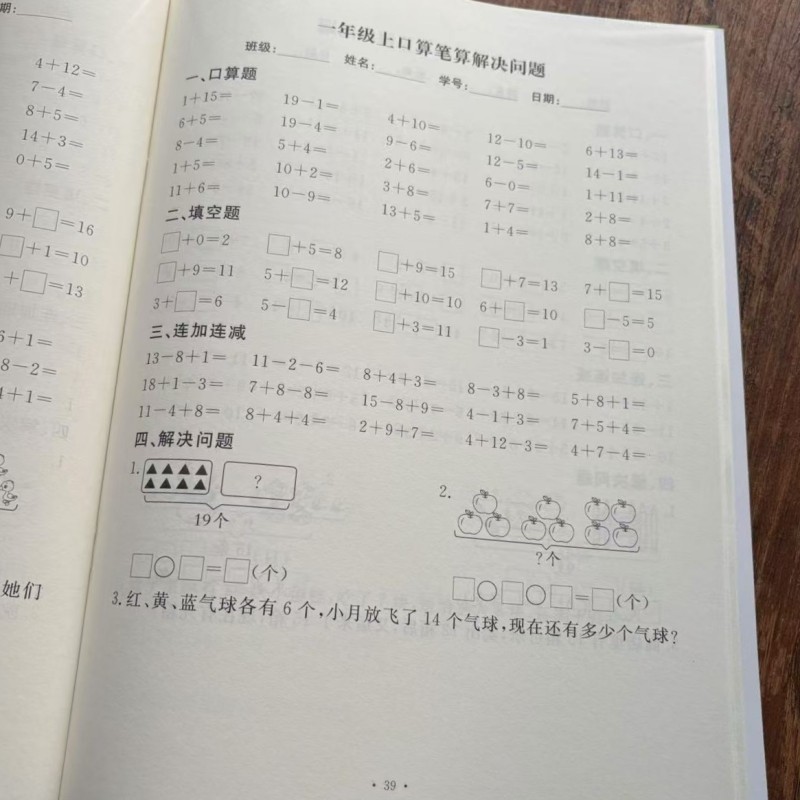 期:
4+12=
7-4=
8+5=
14+3=
0+5=
9+□=16
□+1=10
+□=13
6+1=
8-2=
4+1=
她们
一年级上口算笔算解决问题
班级:______ 姓名:______ 学号:______ 日期:______
一、口算题
1+15= 19-1= 4+10= 12-10= 6+13=
6+5= 19-4= 9-6= 12-5= 14-1=
8-4= 5+4= 2+6= 6-0= 1+11=
1+5= 10+2= 3+8= 7+7= 2+8=
11+6= 10-9= 13+5= 1+4= 8+8=
二、填空题
□+0=2 □+5=8 □+9=15 □+7=13 7+□=15
□+9=11 5+□=12 □+10=10 6+□=10 □-5=5
3+□=6 5-□=4 □+3=11 □-3=1 3-□=0
三、连加连减
13-8+1= 11-2-6= 8+4+3= 8-3+8= 5+8+1=
18+1-3= 7+8-8= 15-8+9= 4-1+3= 7+5+4=
11-4+8= 8+4+4= 2+9+7= 4+12-3= 4+7-4=
四、解决问题
1. ?
19个
□○□=□(个)
2.
?个
□○□○□=□(个)
3.红、黄、蓝气球各有6个,小月放飞了14个气球,现在还有多少个气球?
·39·